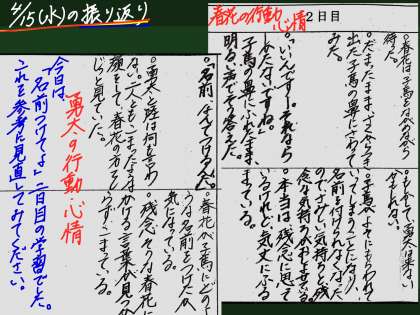 4/15(水)の振り返り
春花の行動・心情
2日目
待った。
・だまったまま、ざくろうを
出た子馬の鼻にさわって
みた。
・「いいんです――。それなら
しかたないですね」
子馬の鼻にふれたまま、
明るい声でそう答えた。
・子馬がよそにもらわれて
いってしまうことになり、
名前を付けられなくなった
のでさびしい気持ちと残
念な気持ちがおしよせる。
・本当は残念に思って
いるけれど、気丈にふる
まっている。
・「名前、なんてつけるんだ。」
・勇太と陸は何も言わ
ない。二人ともこまったような
顔をして、春花の方を
じっと見ていた。
・春花が子馬にどのよ
うな名前をつけたか
気になっている。
・残念そうな春花に
かける言葉が見つか
らずこまっている。
勇太の行動・心情
今日は、
「名前つけてよ」二日目の学習でした。
これを参考に見直してみてください。